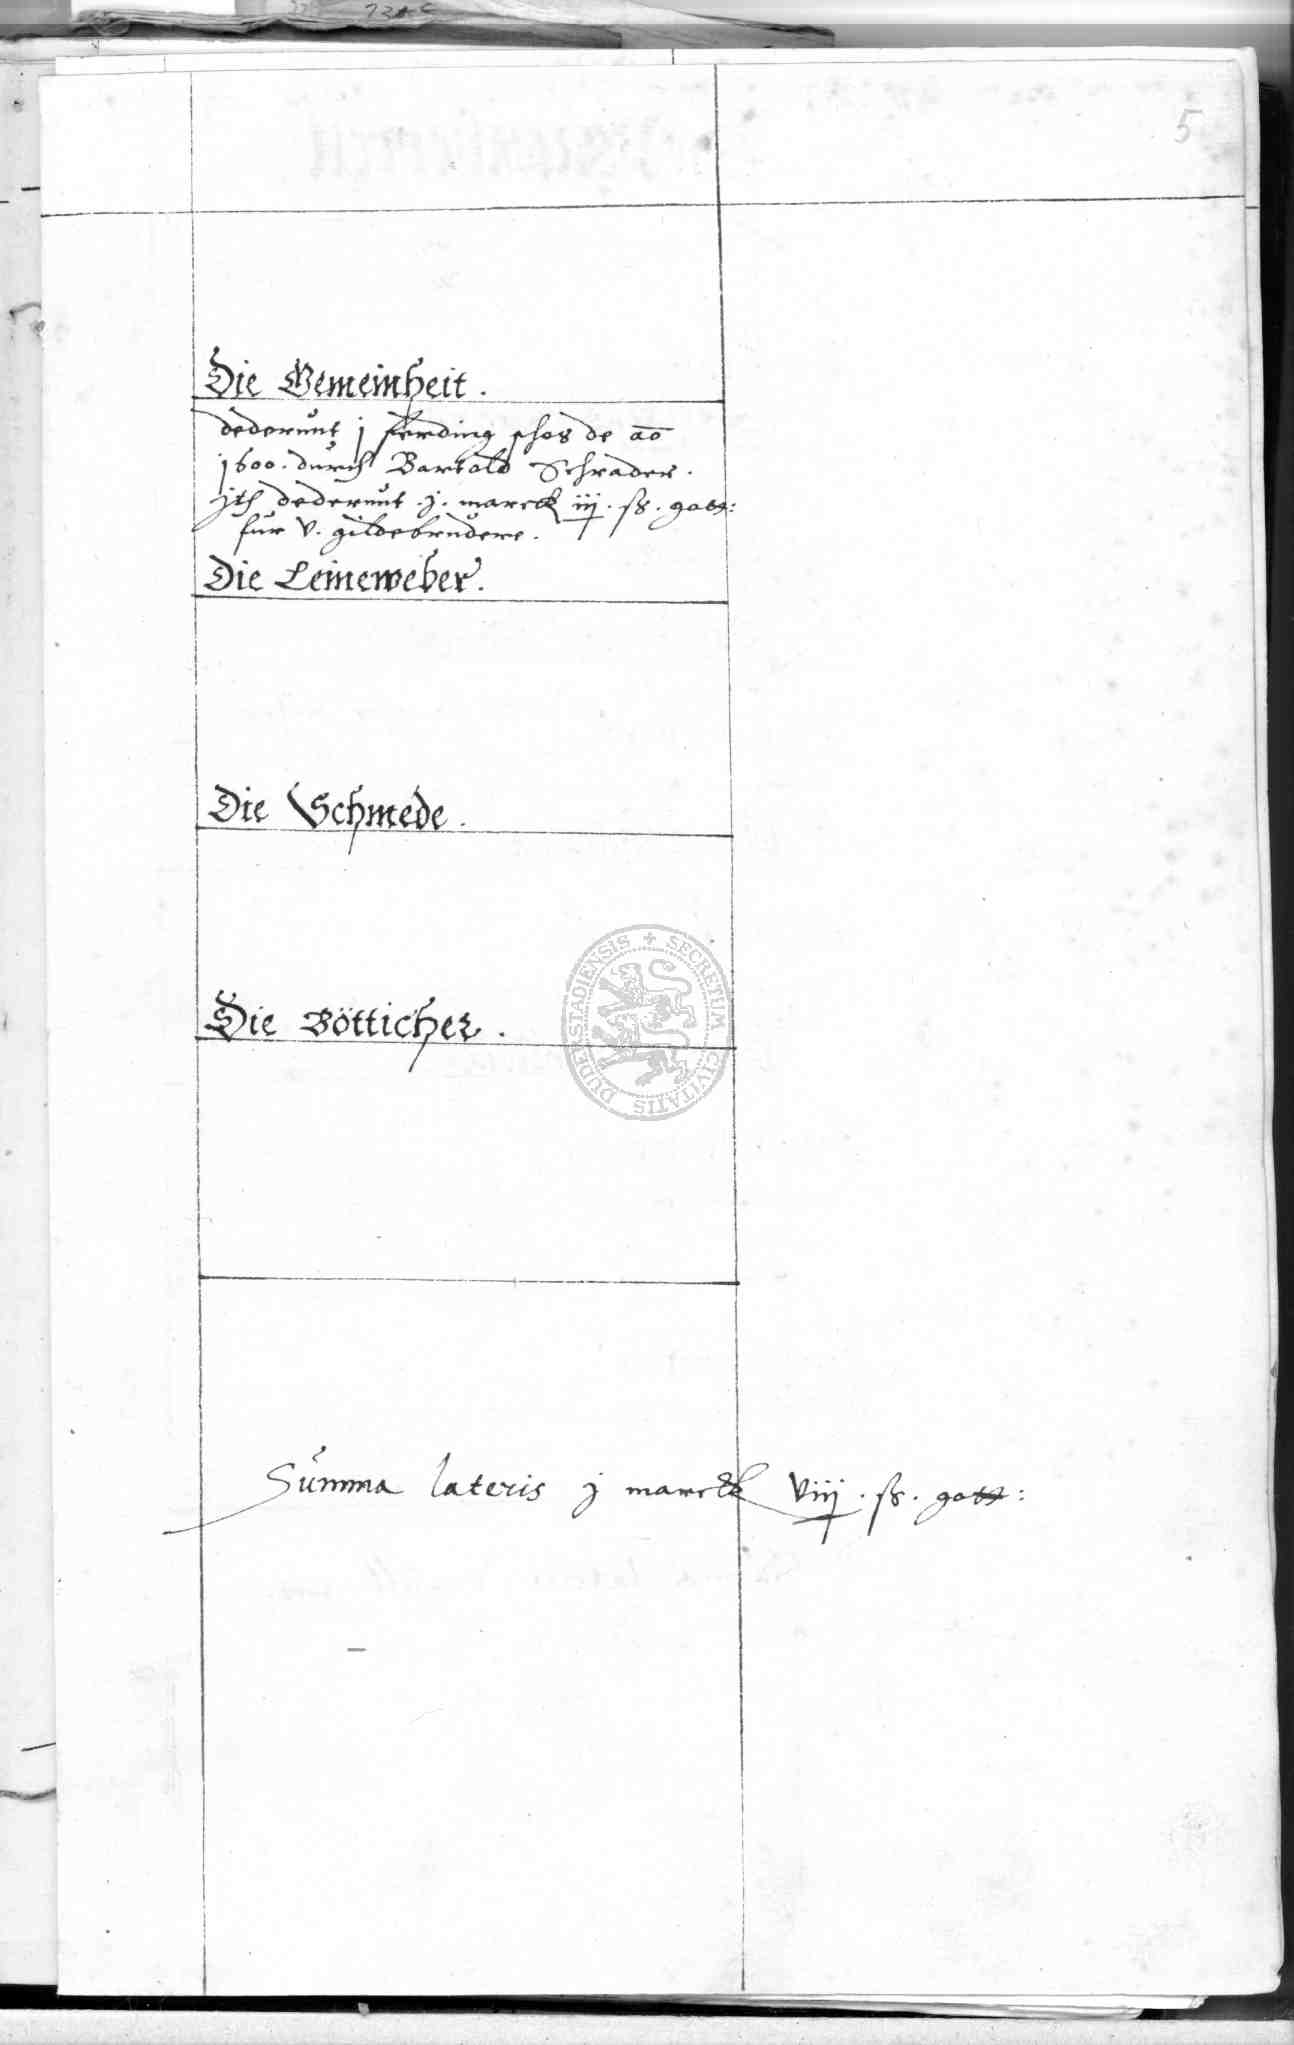 5
Die Gemeinheit.
dederunt j ferding schos de ao
1600. durch Bartold Schrader.
dederunt .j. marck iij. ß. gott:
für v. gildebrudere.
Die Leineweber.
Die Schmede.
Die Bötticher.
SECRETUM CIVITATIS DUDERSTADIENSIS
Summa lateris j marck viij. ß. gott: